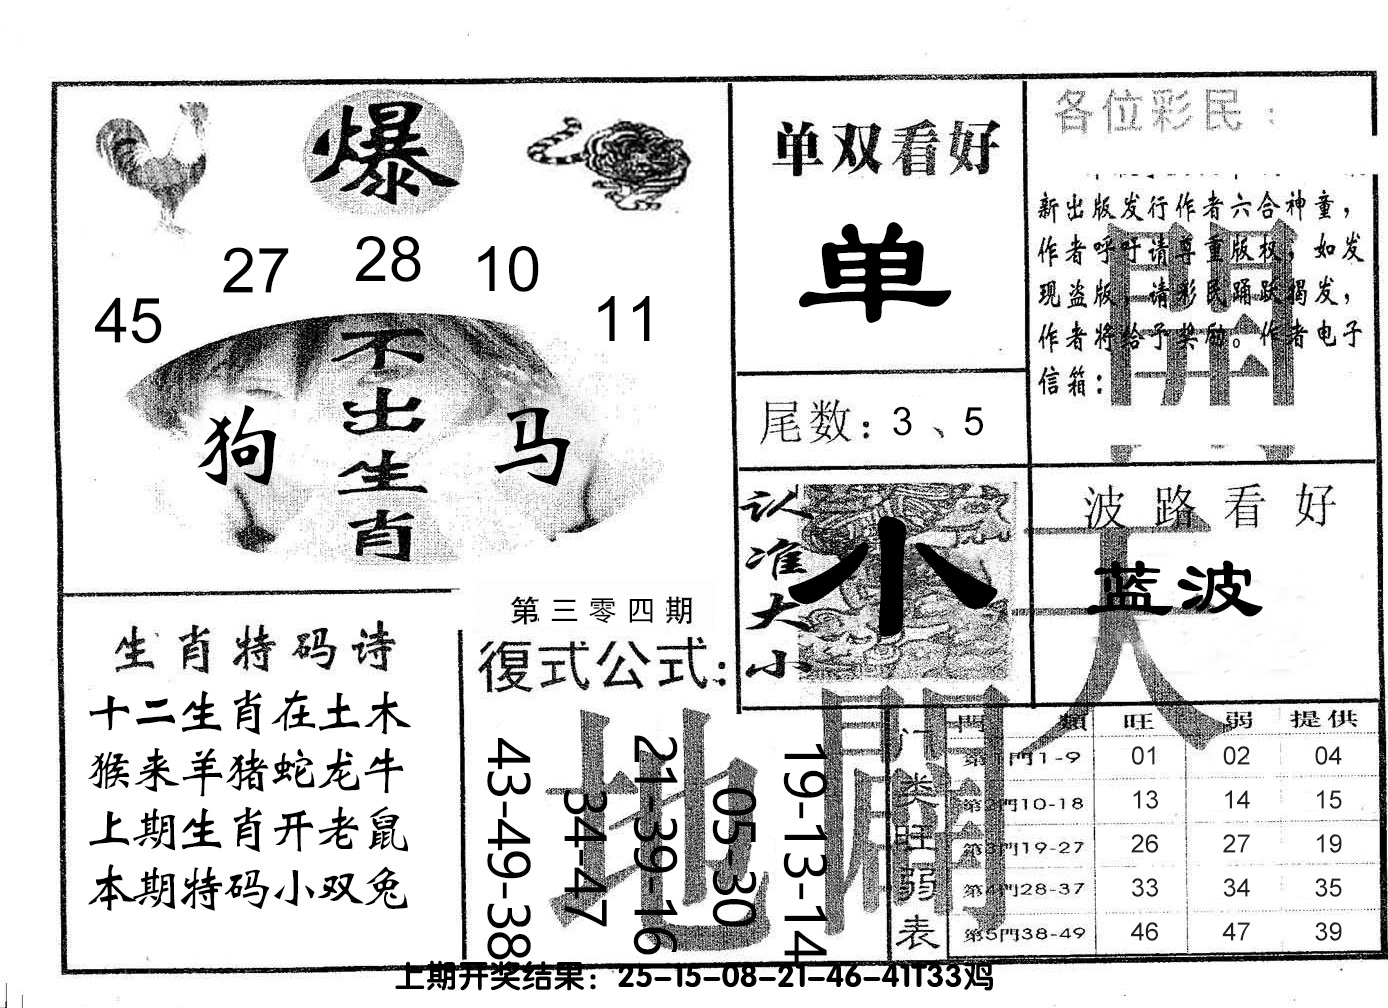 爆
27 28 10
45 11
不出生肖
狗 马
生肖特码诗
十二生肖在土木
猴来羊猪蛇龙牛
上期生肖开老鼠
本期特码小双兔
第三零四期
復式公式:
43-49-38
34-47
21-39-16
05-30
19-13-14
单双看好
单
尾数: 3、5
认准大小
小
各位彩民:
新出版发行作者六合神童,
作者呼吁请尊重版权,如发
现盗版,请彩民踊跃揭发,
作者将给予奖励。作者电子
信箱:
波路看好
蓝波
天
地
開
门类旺弱表
門類 旺 弱 提供
第1門1-9 01 02 04
第2門10-18 13 14 15
第3門19-27 26 27 19
第4門28-37 33 34 35
第5門38-49 46 47 39
上期开奖结果: 25-15-08-21-46-41T33鸡